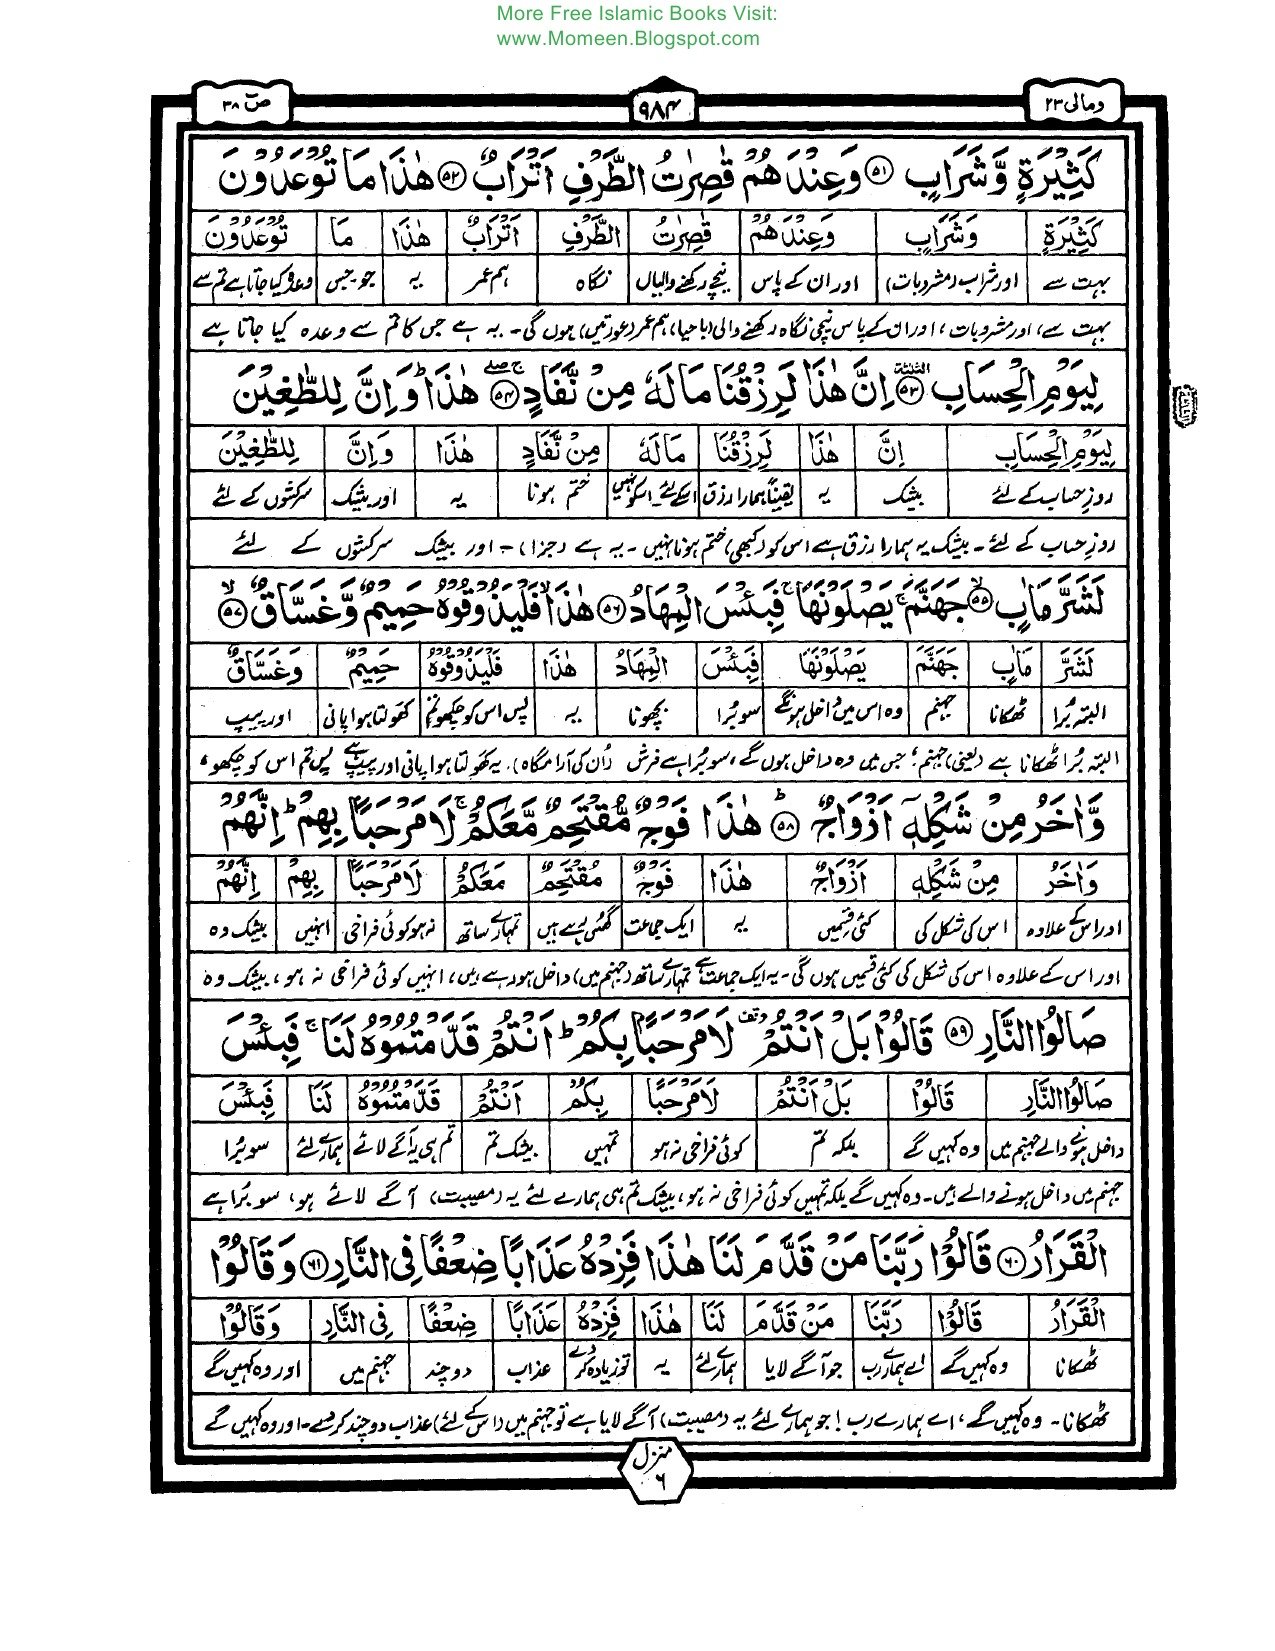 More Free Islamic Books Visit:
www.Momeen.Blogspot.com
ومالی ۲۳ ۹۸۴ صٓ ۳۸
كَثِيْرَةٍ وَّشَرَابٍ ۵۱ وَعِنْدَهُمْ قٰصِرٰتُ الطَّرْفِ اَتْرَابٌ ۵۲ هٰذَا مَا تُوْعَدُوْنَ
كَثِيْرَةٍ وَشَرَابٍ وَعِنْدَهُمْ قٰصِرٰتُ الطَّرْفِ اَتْرَابٌ هٰذَا مَا تُوْعَدُوْنَ
بہت سے اور شراب (مشروبات) اور ان کے پاس نیچے رکھنے والیاں نگاہ ہم عمر یہ جو۔جس وعدہ کیا جاتا ہے تم سے
بہت سے، اور مشروبات، اور ان کے پاس نیچی نگاہ رکھنے والی (باحیا)، ہم عمر (عورتیں) ہوں گی۔ یہ ہے جس کا تم سے وعدہ کیا جاتا ہے
لِيَوْمِ الْحِسَابِ ۵۳ اِنَّ هٰذَا لَرِزْقُنَا مَا لَهٗ مِنْ نَّفَادٍ ۵۴ هٰذَا ؕ وَاِنَّ لِلطّٰغِيْنَ
لِيَوْمِ الْحِسَابِ اِنَّ هٰذَا لَرِزْقُنَا مَا لَهٗ مِنْ نَّفَادٍ هٰذَا وَاِنَّ لِلطّٰغِيْنَ
روزِ حساب کے لئے بیشک یہ یقیناً ہمارا رزق اسکے لئے۔اسکو نہیں ختم ہونا یہ اور بیشک سرکشوں کے لئے
روزِ حساب کے لئے۔ بیشک یہ ہمارا رزق ہے اس کو (کبھی) ختم ہونا نہیں۔ یہ ہے (جزا)۔ اور بیشک سرکشوں کے لئے
لَشَرَّ مَاٰبٍ ۵۵ جَهَنَّمَ ۚ يَصْلَوْنَهَا ۚ فَبِئْسَ الْمِهَادُ ۵۶ هٰذَا ۙ فَلْيَذُوْقُوْهُ حَمِيْمٌ وَّغَسَّاقٌ ۵۷
لَشَرَّ مَاٰبٍ جَهَنَّمَ يَصْلَوْنَهَا فَبِئْسَ الْمِهَادُ هٰذَا فَلْيَذُوْقُوْهُ حَمِيْمٌ وَغَسَّاقٌ
البتہ بُرا ٹھکانا جہنم وہ اس میں داخل ہونگے سو بُرا بچھونا یہ پس اس کو چکھو تم کھولتا ہوا پانی اور پیپ
البتہ بُرا ٹھکانا ہے (یعنی) جہنم، جس میں وہ داخل ہوں گے، سو بُرا ہے فرش (اُن کی آرامگاہ)۔ یہ کھولتا ہوا پانی اور پیپ ہے پس تم اس کو چکھو،
وَّاٰخَرُ مِنْ شَكْلِهٖۤ اَزْوَاجٌ ۵۸ هٰذَا فَوْجٌ مُّقْتَحِمٌ مَّعَكُمْ ۚ لَا مَرْحَبًاۢ بِهِمْ ؕ اِنَّهُمْ
وَاٰخَرُ مِنْ شَكْلِهٖۤ اَزْوَاجٌ هٰذَا فَوْجٌ مُقْتَحِمٌ مَعَكُمْ لَا مَرْحَبًا بِهِمْ اِنَّهُمْ
اور اس کے علاوہ اس کی شکل کی کئی قسمیں یہ ایک جماعت گھس رہے ہیں تمہارے ساتھ نہ ہو کوئی فراخی انہیں بیشک وہ
اور اس کے علاوہ اس کی شکل کی کئی قسمیں ہوں گی۔ یہ ایک جماعت ہے تمہارے ساتھ (جہنم میں) داخل ہو رہے ہیں، انہیں کوئی فراخی نہ ہو، بیشک وہ
صَالُوا النَّارِ ۵۹ قَالُوْا بَلْ اَنْتُمْ لَا مَرْحَبًاۢ بِكُمْ ؕ اَنْتُمْ قَدَّمْتُمُوْهُ لَنَا ۚ فَبِئْسَ
صَالُوا النَّارِ قَالُوْا بَلْ اَنْتُمْ لَا مَرْحَبًا بِكُمْ اَنْتُمْ قَدَّمْتُمُوْهُ لَنَا فَبِئْسَ
داخل ہونے والے جہنم میں وہ کہیں گے بلکہ تم کوئی فراخی نہ ہو تمہیں بیشک تم تم ہی یہ آگے لائے ہمارے لئے سو بُرا
جہنم میں داخل ہونے والے ہیں۔ وہ کہیں گے بلکہ تمہیں کوئی فراخی نہ ہو، بیشک تم ہی ہمارے لئے یہ (مصیبت) آگے لائے ہو، سو بُرا ہے
الْقَرَارُ ۶۰ قَالُوْا رَبَّنَا مَنْ قَدَّمَ لَنَا هٰذَا فَزِدْهُ عَذَابًا ضِعْفًا فِى النَّارِ ۶۱ وَقَالُوْا
الْقَرَارُ قَالُوْا رَبَّنَا مَنْ قَدَّمَ لَنَا هٰذَا فَزِدْهُ عَذَابًا ضِعْفًا فِى النَّارِ وَقَالُوْا
ٹھکانا وہ کہیں گے اے ہمارے رب جو آگے لایا ہمارے لئے یہ تو زیادہ کر دے عذاب دوچند جہنم میں اور وہ کہیں گے
ٹھکانا۔ وہ کہیں گے، اے ہمارے رب! جو ہمارے لئے یہ (مصیبت) آگے لایا ہے تو جہنم میں (اس کے لئے) عذاب دوچند کر دے۔ اور وہ کہیں گے
منزل ۶